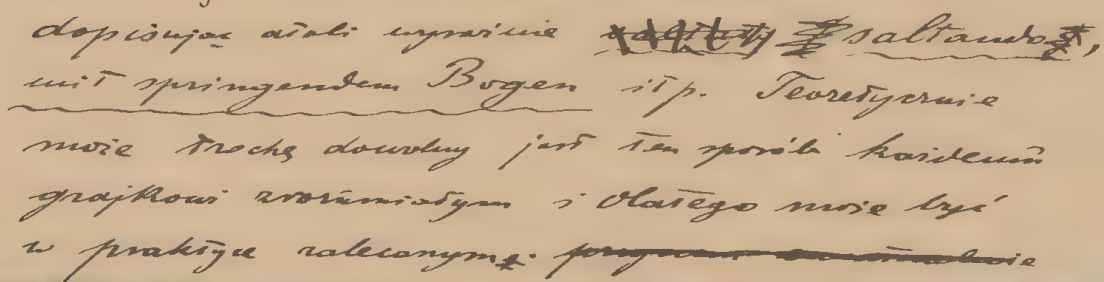 dopisując ataki wyraźnie saltando,
mit springendem Bogen itp. Teoretycznie
może trochę dowolny jest ten sposób każdemu
grajkowi zrozumiałym i dlatego może być
w praktyce zalecanym.